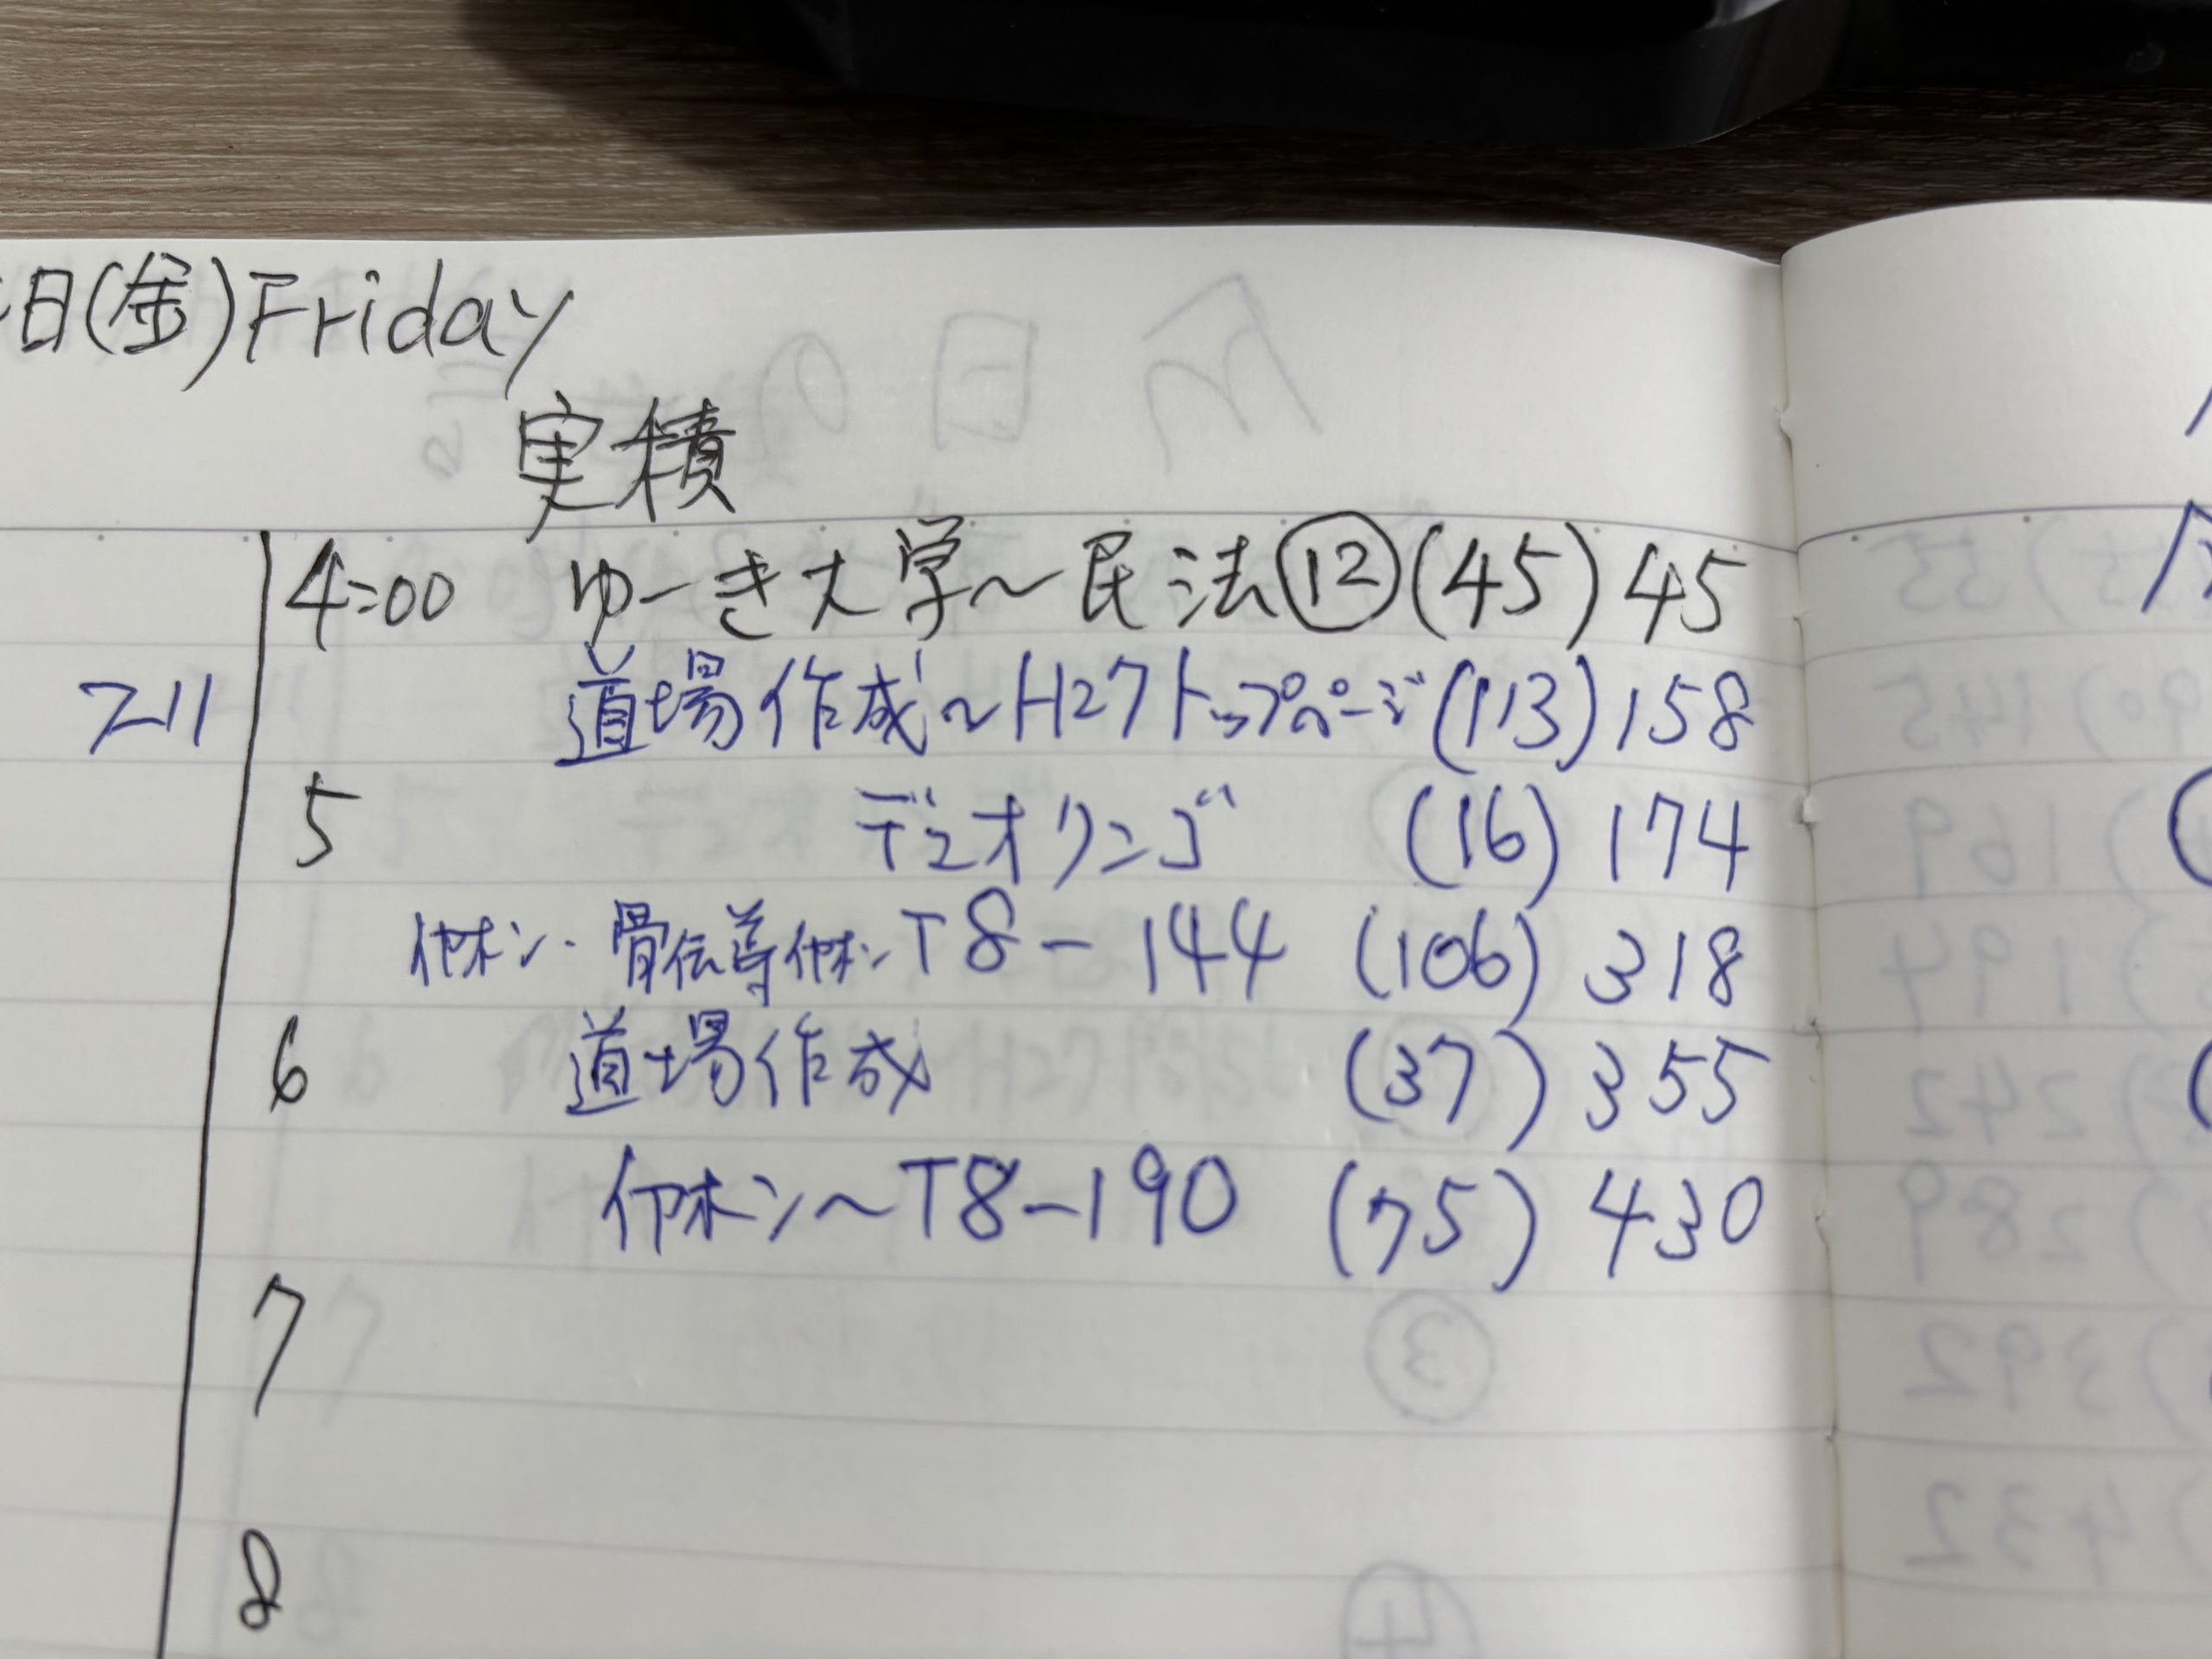 日(金)Friday
実積
4:00 ゆーき大学〜民法⑫(45)45
211 道場作成〜H27トップページ(113)158
5 デュオリンゴ (16) 174
イヤホン・骨伝導イヤホンT8-144 (106) 318
6 道場作成 (37) 355
イヤホン〜T8-190 (75) 430
7
8